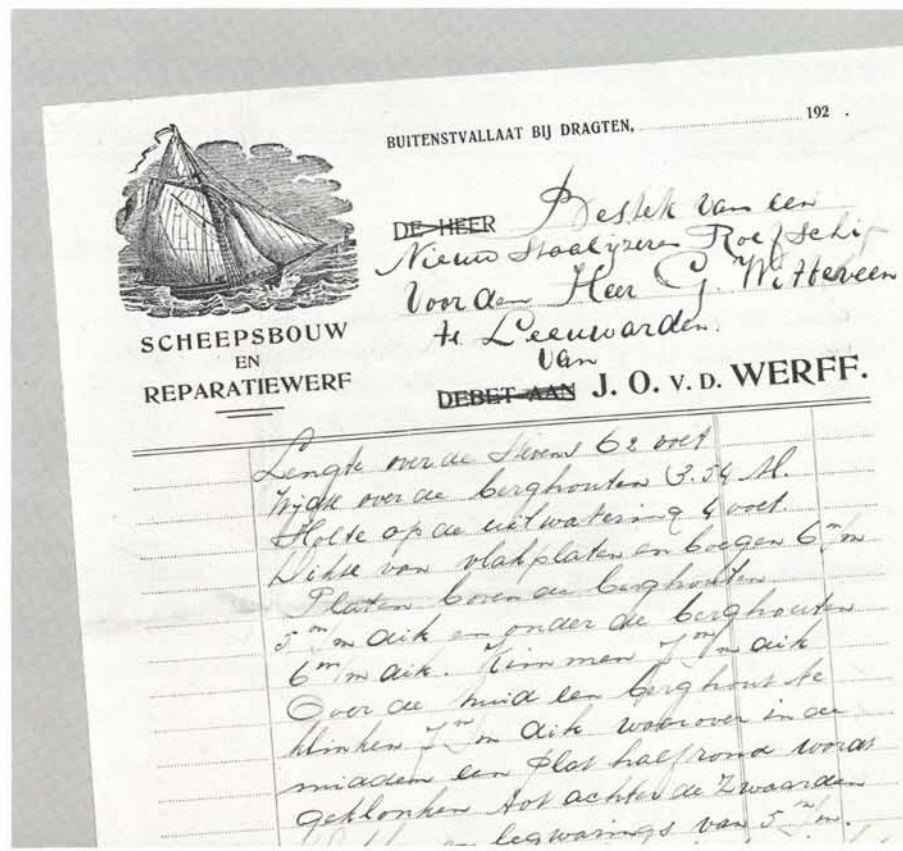 BUITENSTVALLAAT BIJ DRAGTEN, 192 .
DE HEER Bestek van een
Nieuw Staalijzeren Roefschip
Voor den Heer G. Witterveen
te Leeuwarden.
Van
SCHEEPSBOUW
EN
REPARATIEWERF
DEBET AAN J. O. V. D. WERFF.
Lengte over de Stevens 62 voet
Wijdte over de berghouten 3.54 M.
Holte op de uitwatering 4 voet.
Dikte van vlakplaten en boegen 6 m/m
Platen boven de berghouten
5 m/m dik en onder de berghouten
6 m/m dik. Kimmen 7 m/m dik
Over de huid een berghout te
klinken 7 m/m dik waarover in de
midden een plat halfrond wordt
geklonken tot achter de Zwaarden
legwarings van 5 m/m.